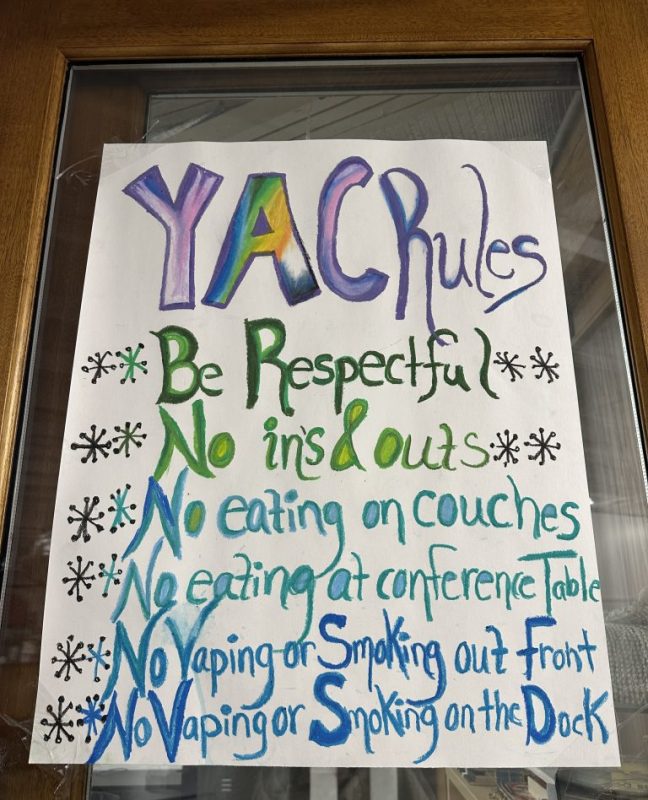 YAC Rules
Be Respectful
No in's & outs
No eating on couches
No eating at conference Table
No Vaping or Smoking out Front
No Vaping or Smoking on the Dock